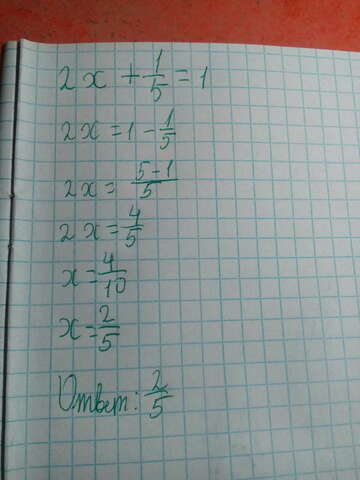 2x + 1/5 = 1
2x = 1 - 1/5
2x = 5-1/5
2x = 4/5
x = 4/10
x = 2/5
Ответ: 2/5